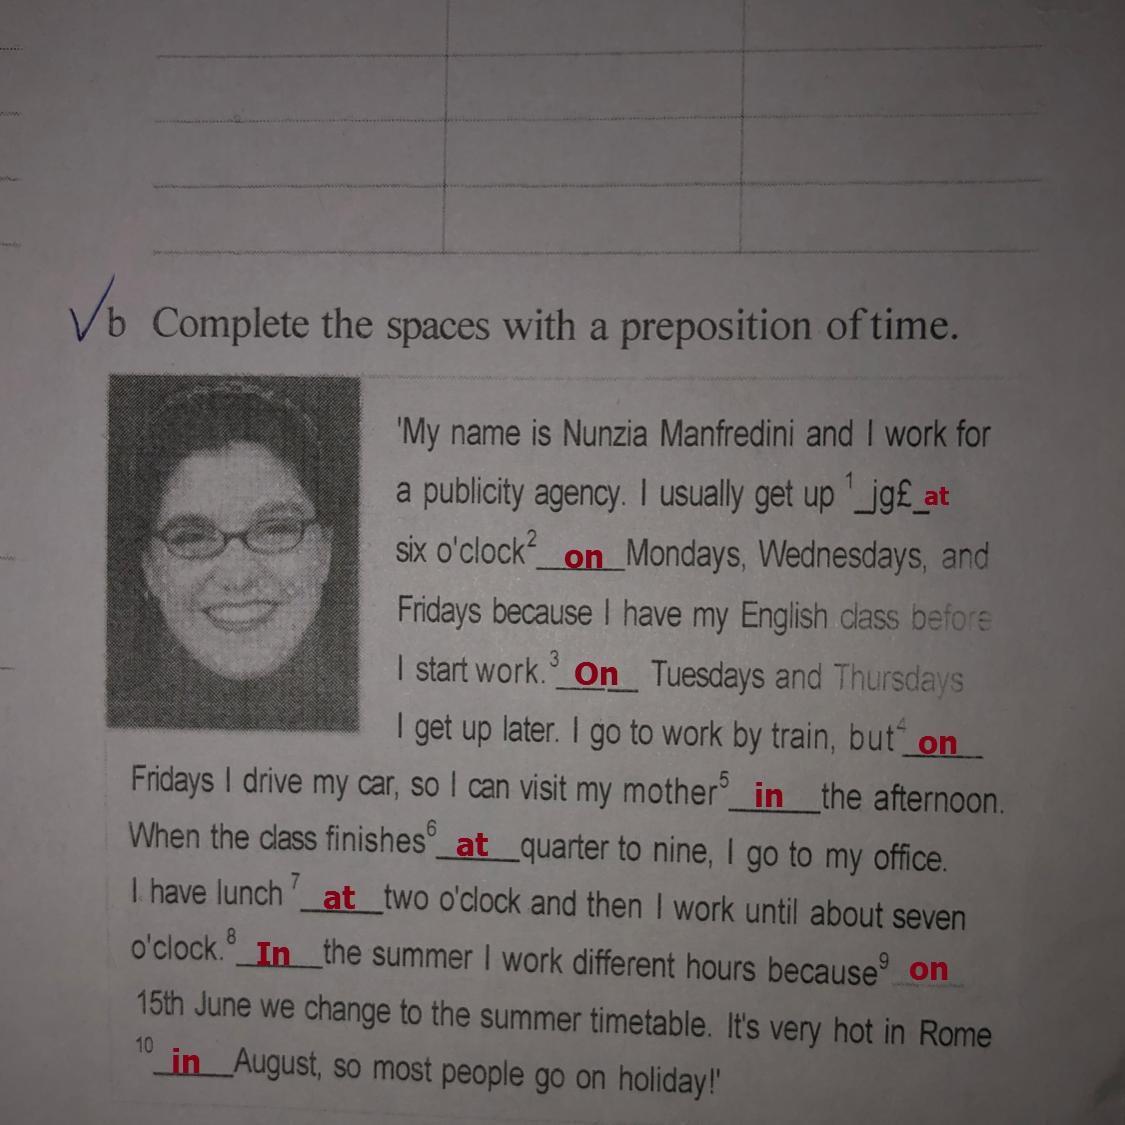 b Complete the spaces with a preposition of time.
'My name is Nunzia Manfredini and I work for
a publicity agency. I usually get up 1 _jg£_at
six o'clock 2 on Mondays, Wednesdays, and
Fridays because I have my English class before
I start work. 3 On Tuesdays and Thursdays
I get up later. I go to work by train, but 4 on
Fridays I drive my car, so I can visit my mother 5 in the afternoon.
When the class finishes 6 at quarter to nine, I go to my office.
I have lunch 7 at two o'clock and then I work until about seven
o'clock. 8 In the summer I work different hours because 9 on
15th June we change to the summer timetable. It's very hot in Rome
10 in August, so most people go on holiday!'